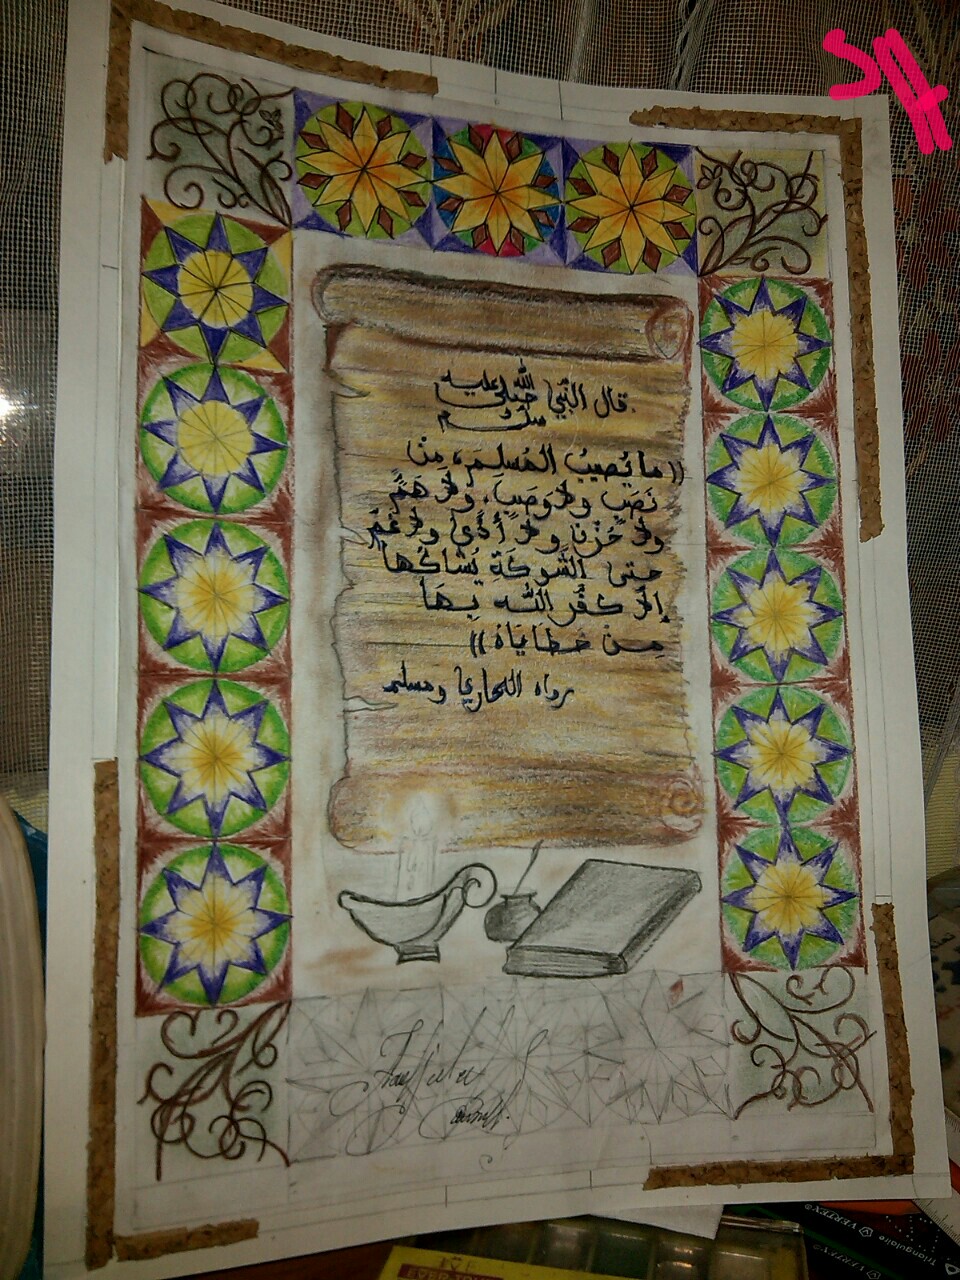 قال النَّبي صلى الله عليه
وسلم
((ما يُصيبُ المُسلِمَ، مِنْ
نَصَبٍ ولا وَصَبٍ، ولا هَمٍّ
ولا حُزْنٍ ولا أذًى ولا غَمٍّ
حتى الشَّوكَةِ يُشاكُها
إلا كفَّر الله بِهَا
مِنْ خطَايَاهُ))
رواه البخاري ومسلم
VERTEX
Triangulaire VERTEX